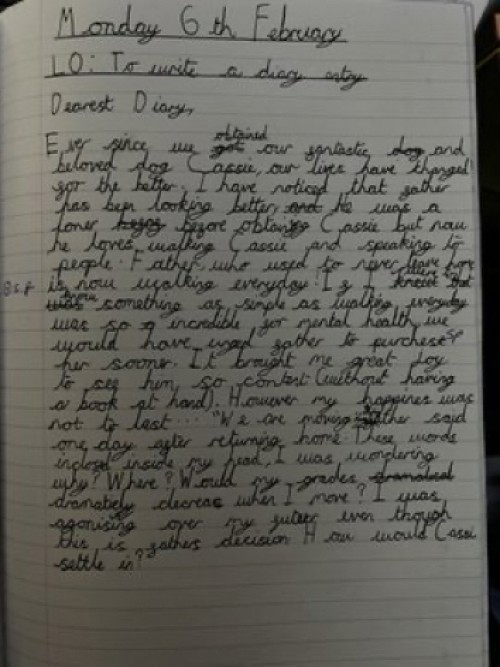 Monday 6th February
LO: To write a diary entry
Dearest Diary,
Ever since we got obtained our fantastic dog and
beloved dog Cassie, our lives have changed
for the better. I have noticed that father
has been looking better, and He was a
loner before obtaining Cassie but now
he loves walking Cassie and speaking to
people. Father, who used to never leave home
is now walking everyday. If I
something as simple as walking everyday
was so incredible for mental health we
would have urged father to purchese sp
her sooner. It brought me great joy
to see him so content (without having
a book at hand). However my happines was
not to last... "We are moving father said
one day after returning home. These words
inside my head, I was wondering
why? Where? Would my grades
dramaticly decreas when I move? I was
agonising over my future even though
this is fathers decision How would Cassi
settle in?